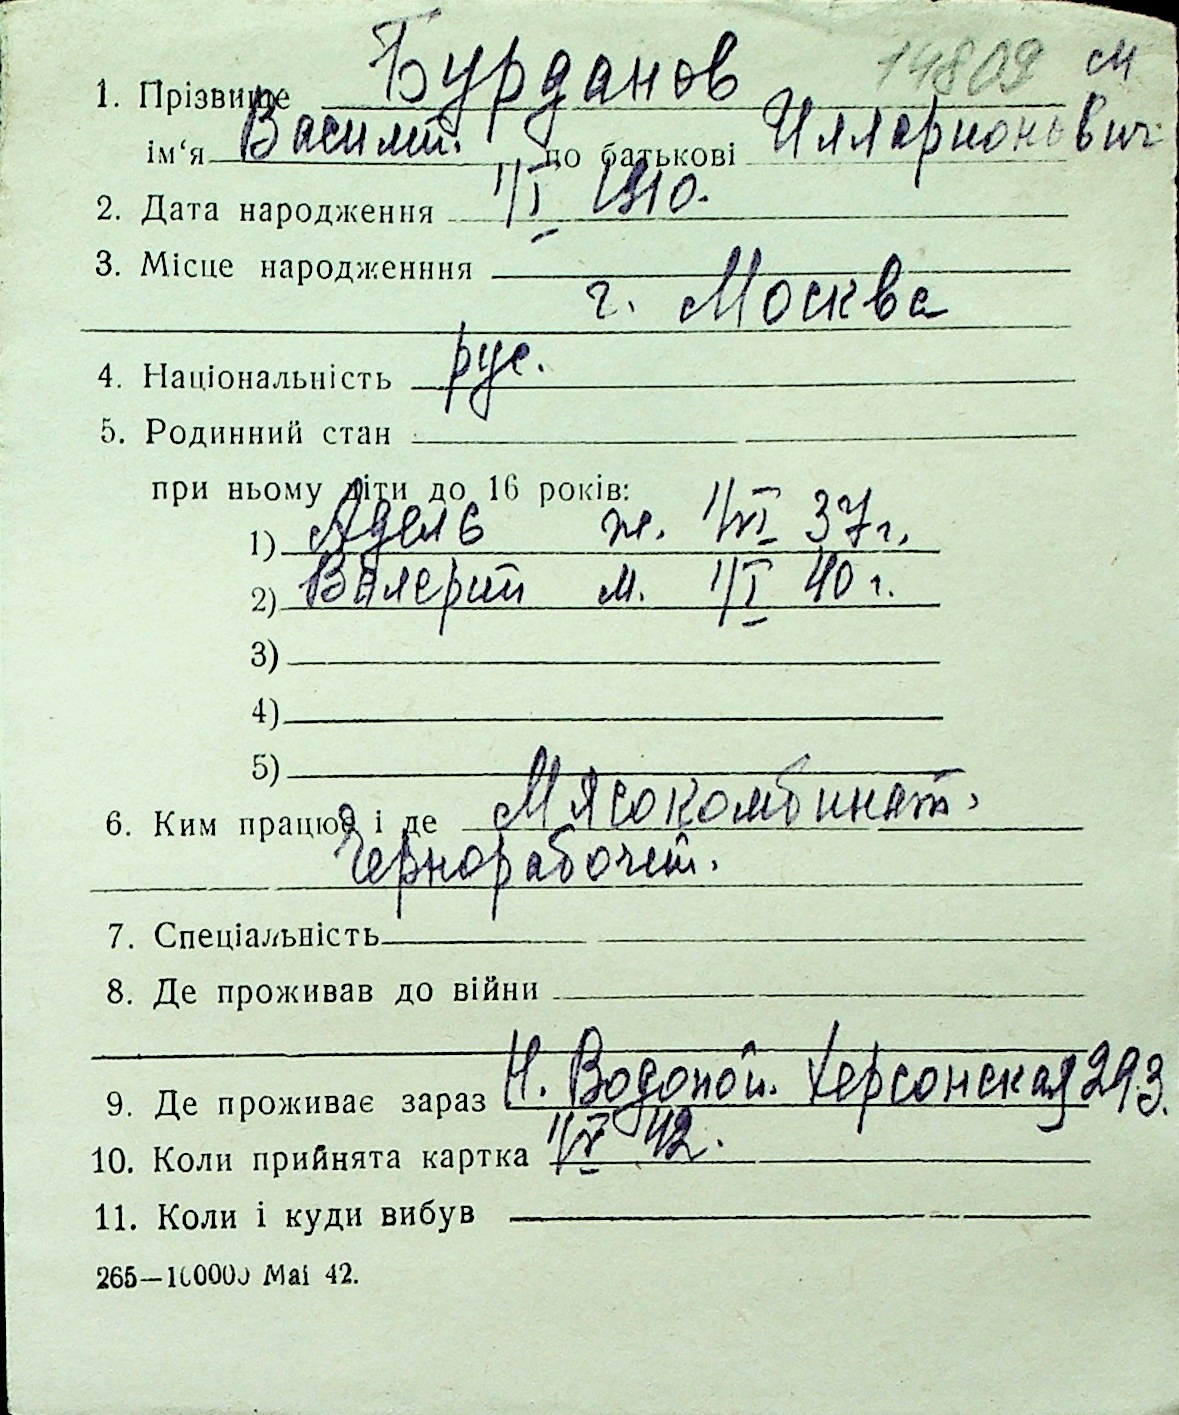 14809 м
1. Прізвище Бурданов
ім'я Василий по батькові Илларионович
2. Дата народження 1/I 1910.
3. Місце народженння
г. Москва
4. Національність рус.
5. Родинний стан
при ньому діти до 16 років:
1) Адель ж. 1/VI 37 г.
2) Валерий м. 1/I 40 г.
3)
4)
5)
6. Ким працює і де Мясокомбинат.
Чернорабочий.
7. Спеціальність
8. Де проживав до війни
9. Де проживає зараз Н. Водопой. Херсонская 293.
10. Коли прийнята картка 42.
11. Коли і куди вибув
265—10000) Mai 42.